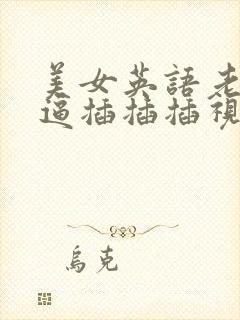 美女英語老
逼插插插視
烏克